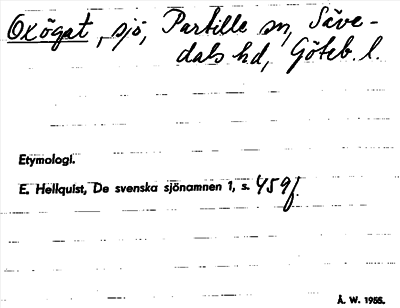 Oxögat, sjö, Partille sn, Säve-
dals hd, Göteb. l.
Etymologi.
E. Hellquist, De svenska sjönamnen 1, s. 459f.
Å. W. 1955.